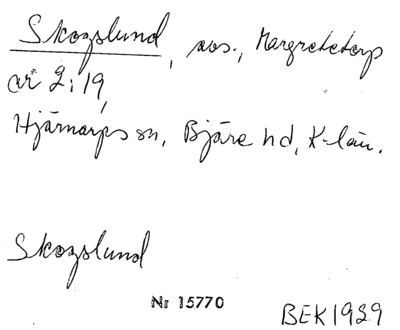 Skogslund, avs., Margretetorp
nr 2:19,
Hjärnarps sn, Bjäre hd, K-län.
Skogslund
Nr 15770
BEK1929